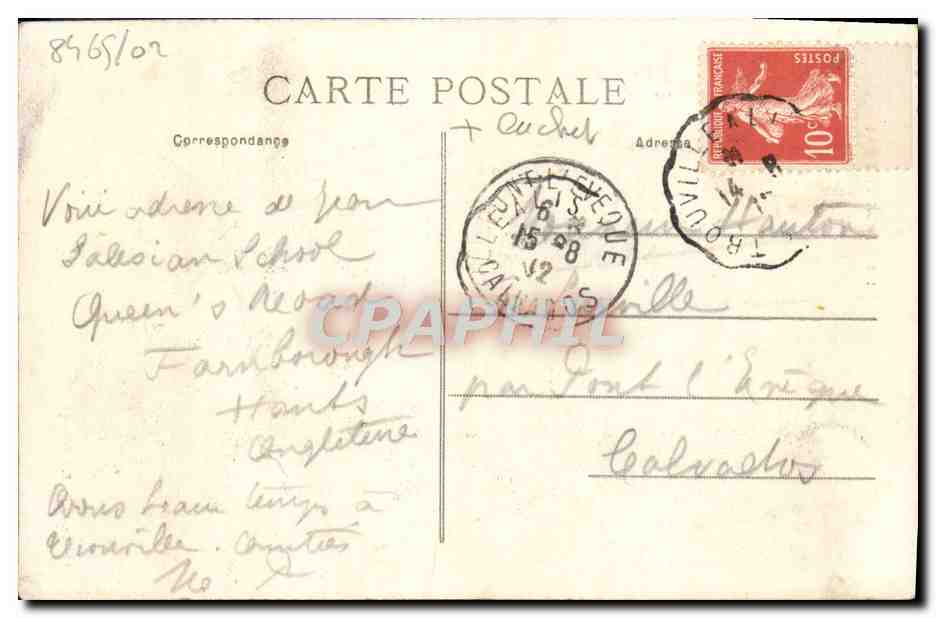 8465/02
CARTE POSTALE
+ cachet
Correspondance
Adresse
REPUBLIQUE FRANÇAISE
POSTES
10c
TROUVILLE
14
PONT-L'EVEQUE
15 -8
12
CALVADOS
Voici adresse de Jean
Salesian School
Queen's Road
Farnborough
Hants
Angleterre
Avons beau temps à
Trouville. Amitiés
par Pont l'Evêque
Calvados
CPAPHIL